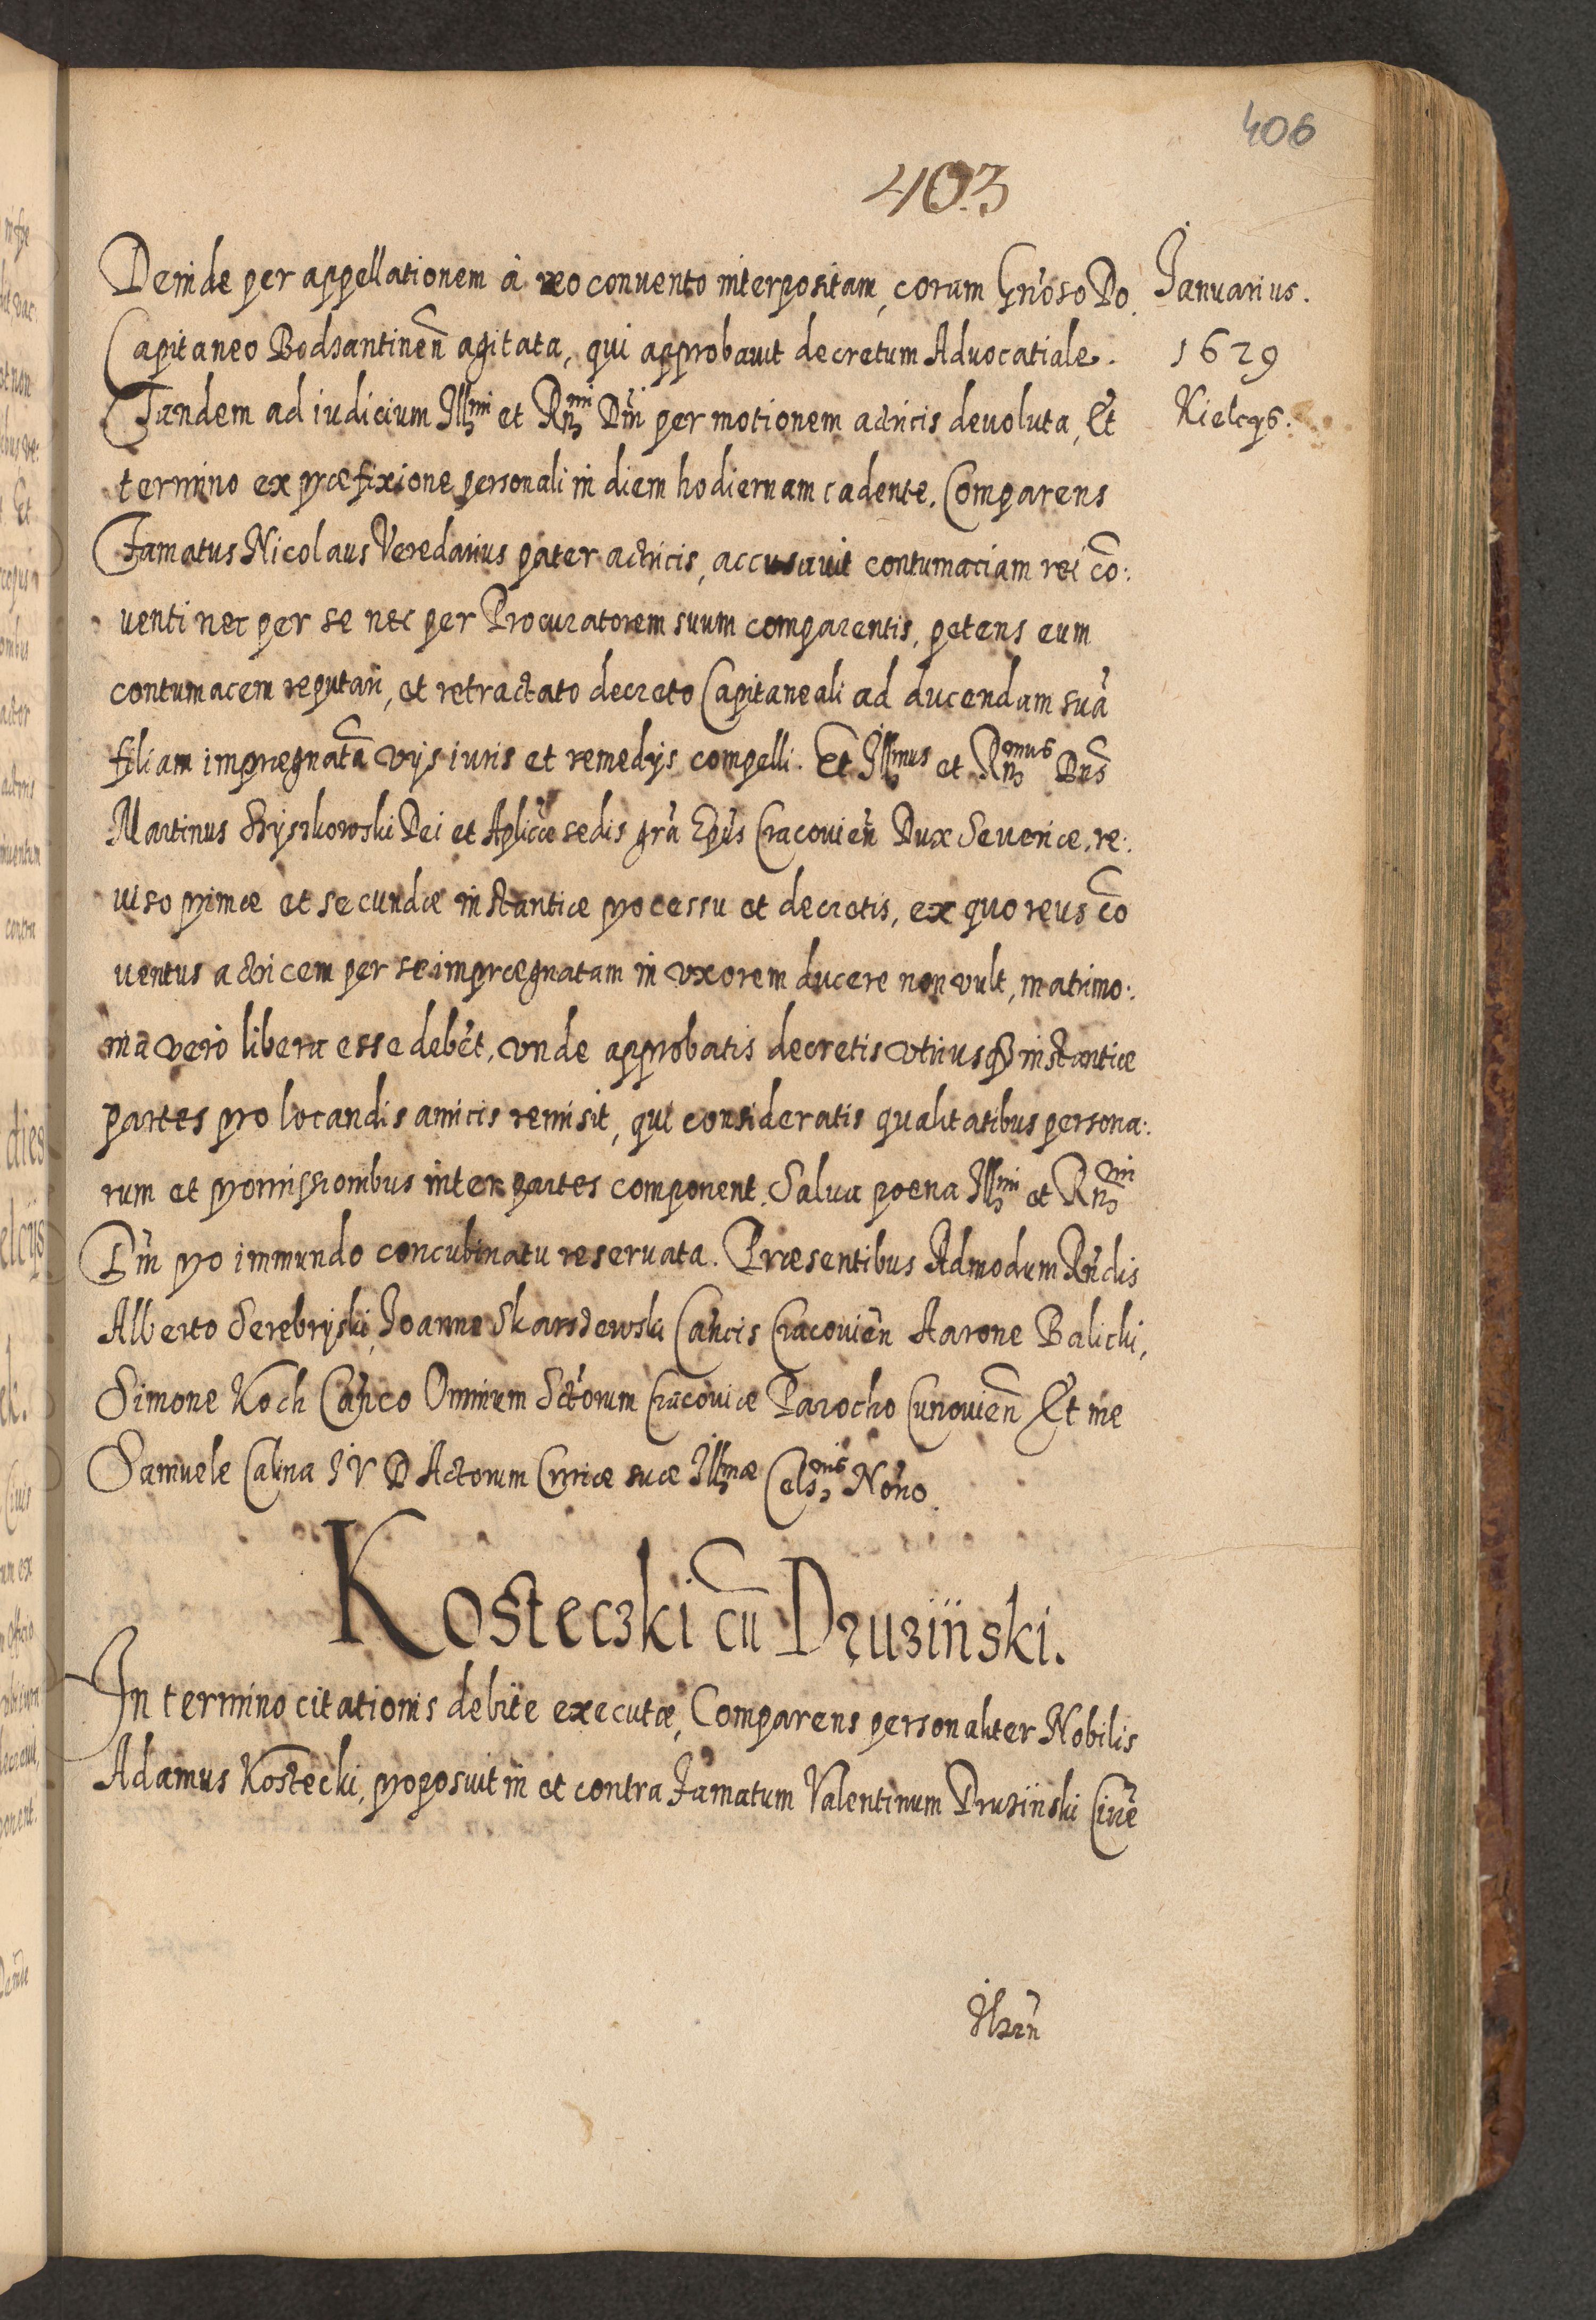 406
403
Januarius.
1629
Kielcys.
Deinde per appellationem à reo convento interpositam, coram Gn̄oso Do.
Capitaneo Bodzantinen̄ agitata, qui approbavit decretum Advocatiale.
Tandem ad iudicium Illmi et Rn̄mi Dn̄i per motionem actricis devoluta, Et
termino ex præfixione personali in diem hodiernam cadente. Comparens
Famatus Nicolaus Veredarius pater actricis, accusavit contumaciam rei cō:
venti nec per se nec per Procuratorem suum comparentis, petens eum
contumacem reputari, et retractato decreto Capitaneali ad ducendam suā
filiam imprægnatā vijs iuris et remedijs compelli. Et Illmus et Rn̄mus Dn̄s
Martinus Szyszkowski Dei et Aplicæ sedis grā Epūs Cracovien̄ Dux Severiæ, re:
viso primæ et secundæ instantiæ processu et decretis, ex quo reus cō
ventus actricem per se imprægnatam in vxorem ducere non vult, matrimo:
nia verò libera esse debēt, vnde approbatis decretis vtriusq̃ instantiæ
partes pro locandis amicis remisit, qui consideratis qualitatibus persona:
rum et promissionibus inter partes component. Salva poena Illmi et Rn̄mi
Dn̄i pro immundo concubinatu reservata. Præsentibus Admodum Rn̄dis
Alberto Serebryski, Joanne Skarszewski Cancis Cracovien̄ Aarone Balicki,
Simone Koch Canco Omnium Sctorum Cracoviæ Parocho Cunovien̄ Et me
Samuele Calina J V D Actorum Curiæ suæ Illmæ Celsnis Nōrio.
Kosteczki cū Druziński.
In termino citationis debite executæ, Comparens personaliter Nobilis
Adamus Kostecki, proposuit in et contra Famatum Valentinum Druziński Civē
Ilzen̄